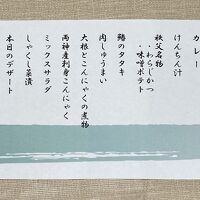 カレー
けんちん汁
秩父名物
・わらじかつ
・味噌ポテト
鰹のタタキ
肉しゅうまい
大根とこんにゃくの煮物
両神産刺身こんにゃく
ミックスサラダ
しゃくし菜漬
本日のデザート